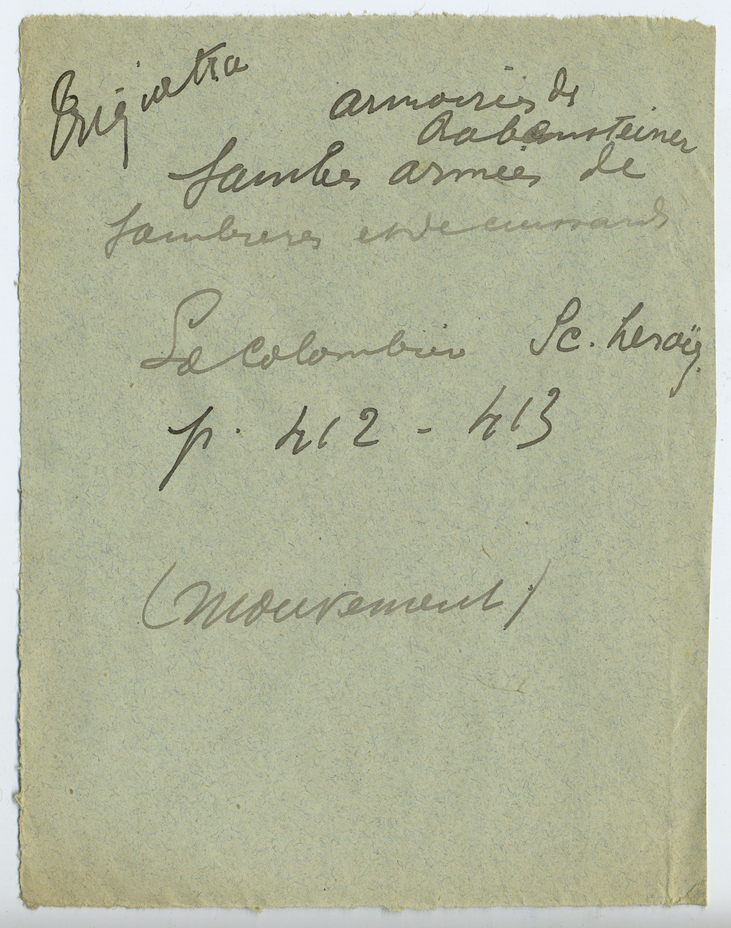 Triquetra
armoiries de
Rabensteiner
Jambes armées de
Jambieres et de cuissards
La Colombière Sc. heroïq.
p. 412 - 413
(Mouvement)